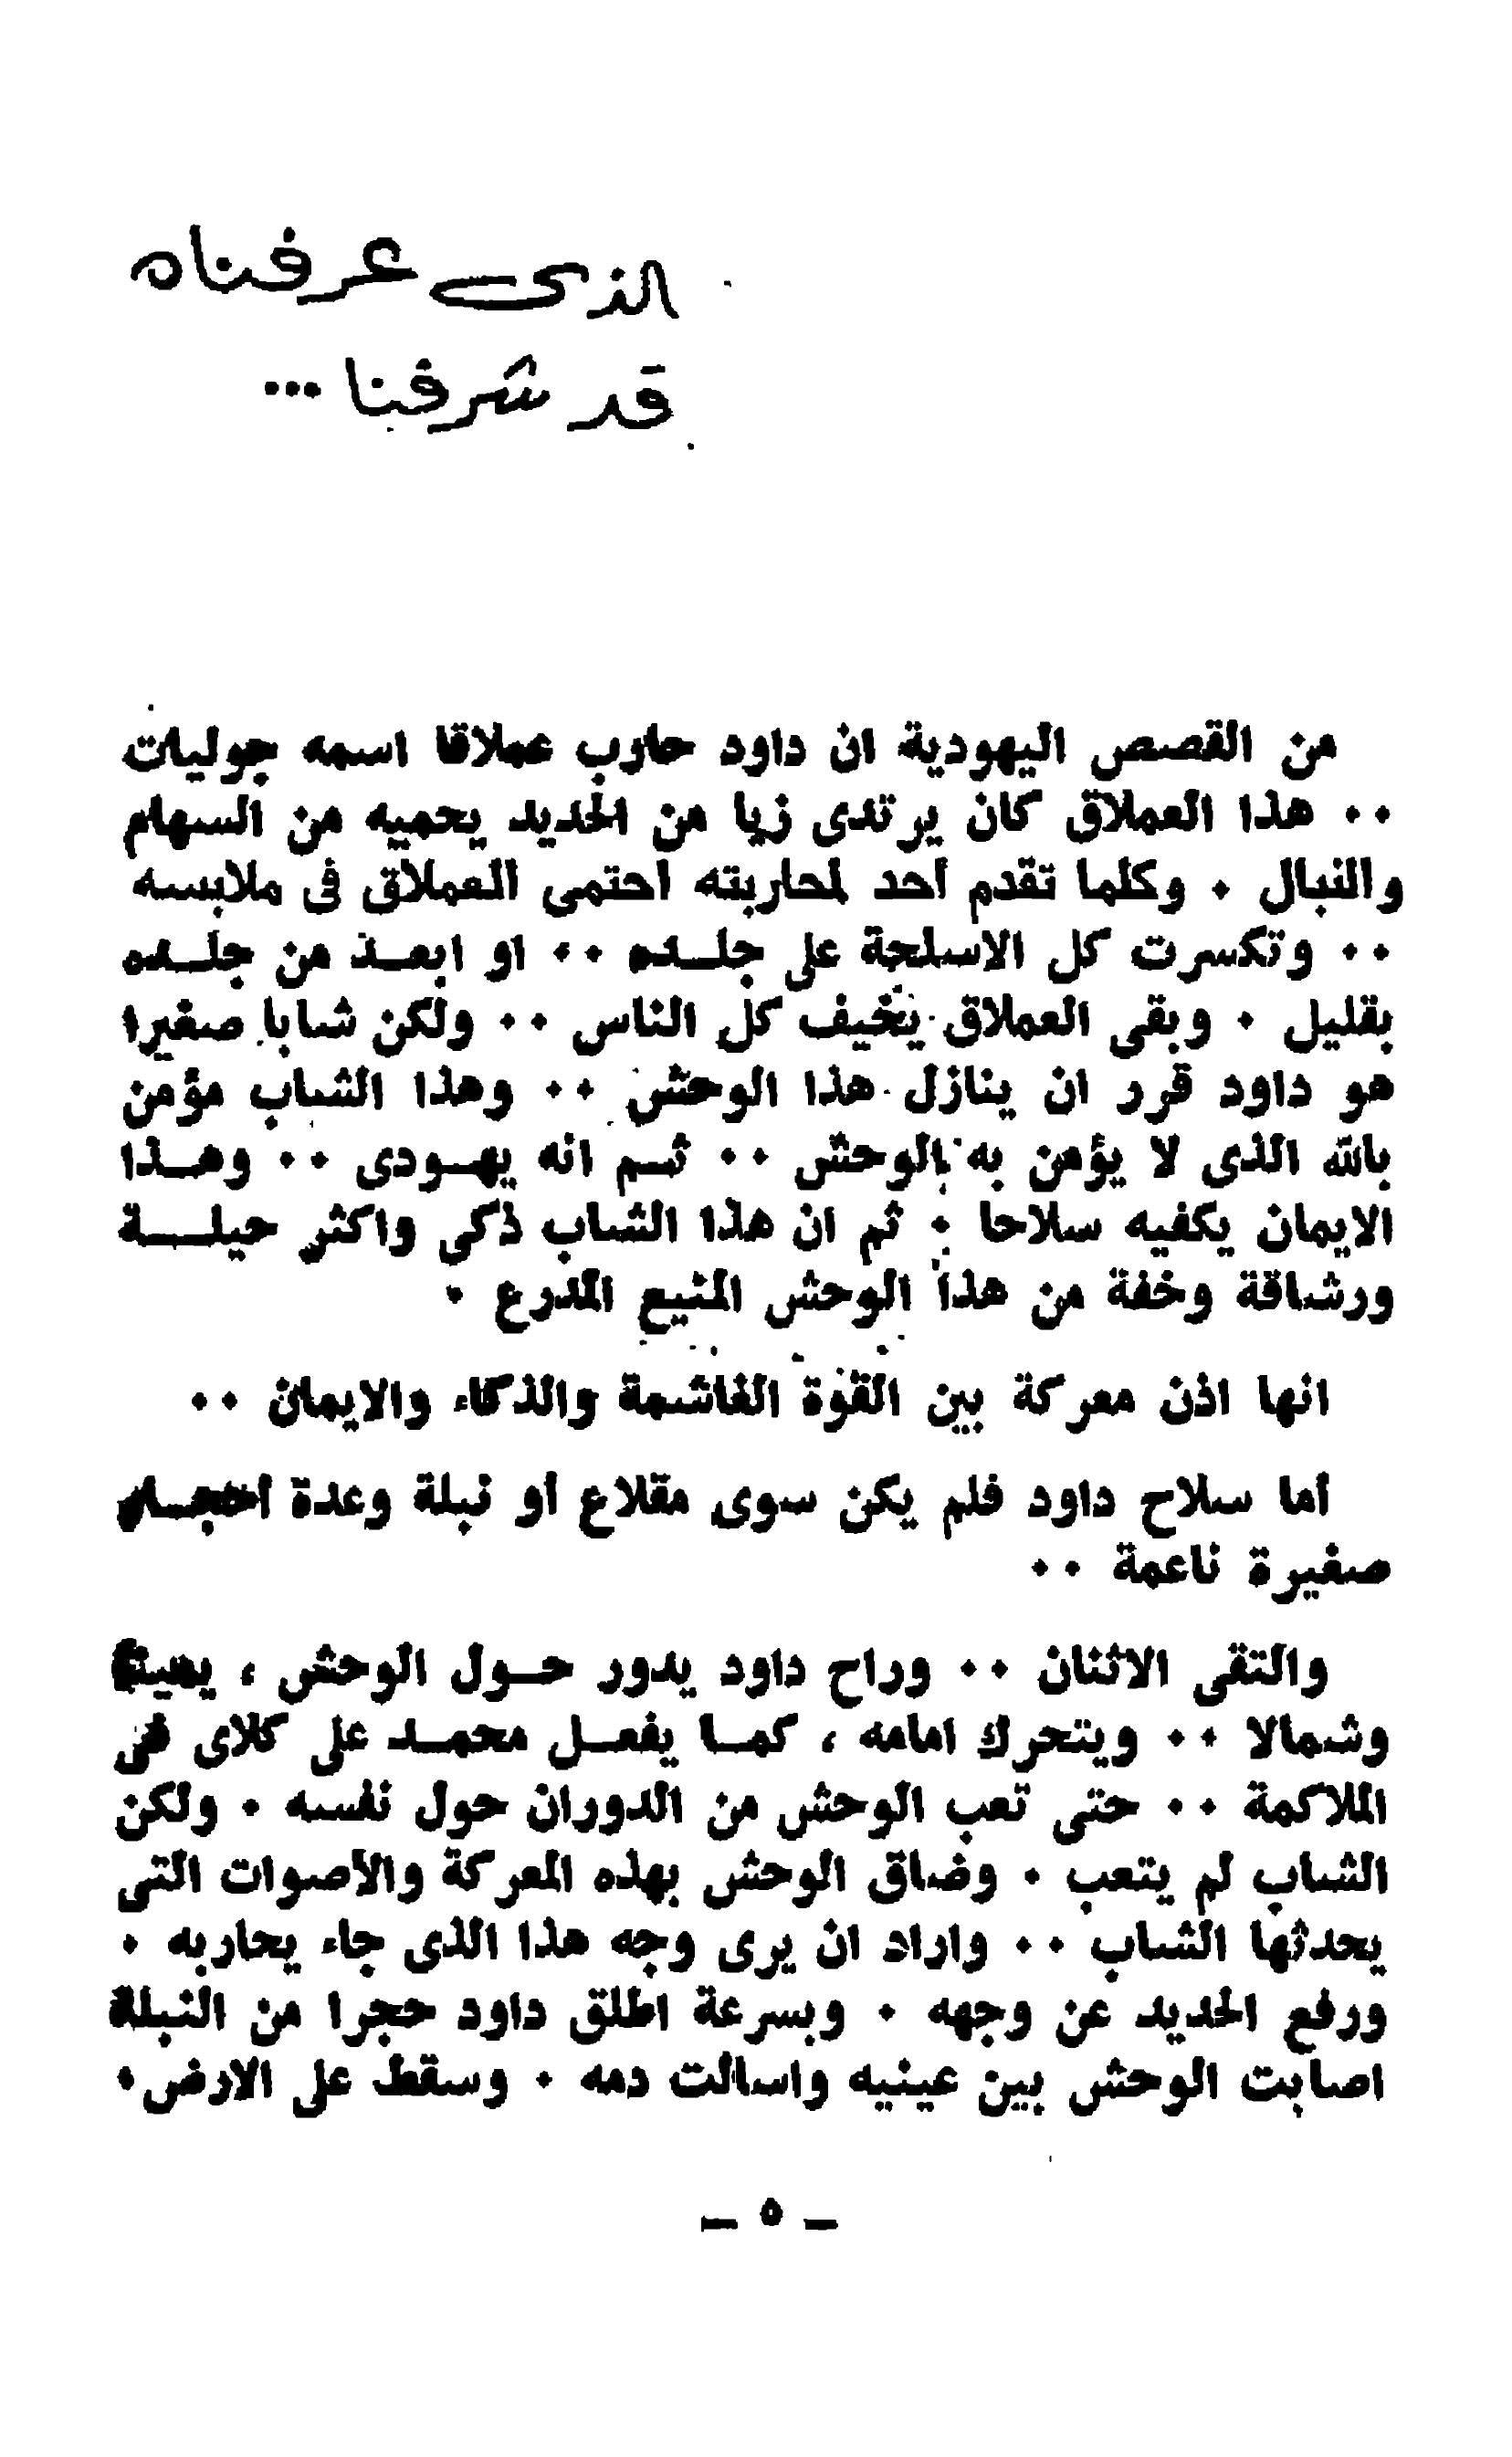 الذى عرفناه
قد شرفنا ...
من القصص اليهودية ان داود حارب عملاقا اسمه جوليات
٠٠ هذا العملاق كان يرتدى زيا من الحديد يحميه من السهام
والنبال ٠ وكلما تقدم أحد لمحاربته احتمى العملاق فى ملابسه
٠٠ وتكسرت كل الاسلحة على جلـده ٠٠ او ابعـد من جلـده
بقليل ٠ وبقى العملاق يخيف كل الناس ٠٠ ولكن شابا صغيرا
هو داود قرر ان ينازل هذا الوحش ٠٠ وهذا الشاب مؤمن
بالله الذى لا يؤمن به الوحش ٠٠ ثـم انه يهـودى ٠٠ وهـذا
الايمان يكفيه سلاحا ٠ ثم ان هذا الشاب ذكى واكثر حيلـــة
ورشاقة وخفة من هذا الوحش المنيع المدرع ٠
انها اذن معركة بين القوة الغاشمة والذكاء والايمان ٠٠
أما سلاح داود فلم يكن سوى مقلاع أو نبلة وعدة احجـار
صغيرة ناعمة ٠٠
والتقى الاثنان ٠٠ وراح داود يدور حـول الوحش ، يمينا
وشمالا ٠٠ ويتحرك امامه ، كمـا يفعـل محمـد على كلاى فى
الملاكمة ٠٠ حتى تعب الوحش من الدوران حول نفسه ٠ ولكن
الشاب لم يتعب ٠ وضاق الوحش بهذه المعركة والأصوات التى
يحدثها الشاب ٠٠ واراد ان يرى وجه هذا الذى جاء يحاربه ٠
ورفع الحديد عن وجهه ٠ وبسرعة اطلق داود حجرا من النبلة
اصابت الوحش بين عينيه واسالت دمه ٠ وسقط على الارض ٠
ـ ٥ ـ